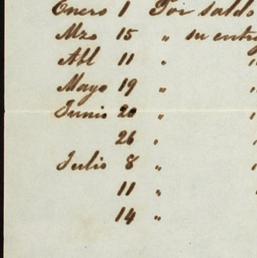 Enero 1 Por saldo
Mzo 15 " su entr
Abl 11 "
Mayo 19 "
Junio 20 "
26 "
Julio 8 "
11 "
14 "